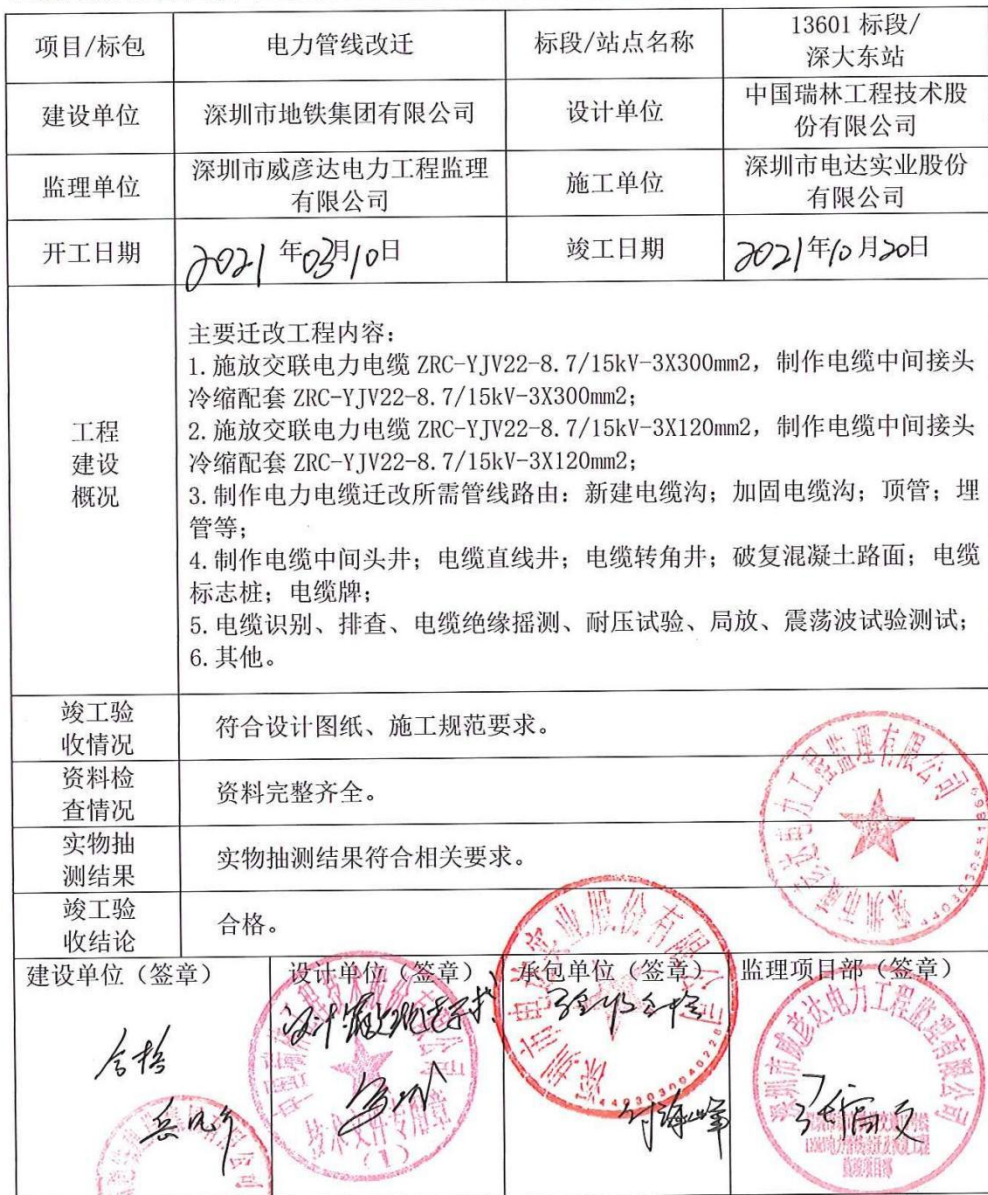 项目/标包
电力管线改迁
标段/站点名称
13601 标段/
深大东站
建设单位
深圳市地铁集团有限公司
设计单位
中国瑞林工程技术股
份有限公司
监理单位
深圳市威彦达电力工程监理
有限公司
施工单位
深圳市电达实业股份
有限公司
开工日期
2021 年03月10日
竣工日期
2021年10月20日
工程
建设
概况
主要迁改工程内容：
1.施放交联电力电缆 ZRC-YJV22-8.7/15kV-3X300mm2，制作电缆中间接头
冷缩配套 ZRC-YJV22-8.7/15kV-3X300mm2；
2.施放交联电力电缆 ZRC-YJV22-8.7/15kV-3X120mm2，制作电缆中间接头
冷缩配套 ZRC-YJV22-8.7/15kV-3X120mm2；
3.制作电力电缆迁改所需管线路由：新建电缆沟；加固电缆沟；顶管；埋
管等；
4.制作电缆中间头井；电缆直线井；电缆转角井；破复混凝土路面；电缆
标志桩；电缆牌；
5.电缆识别、排查、电缆绝缘摇测、耐压试验、局放、震荡波试验测试；
6.其他。
竣工验
收情况
符合设计图纸、施工规范要求。
资料检
查情况
资料完整齐全。
实物抽
测结果
实物抽测结果符合相关要求。
竣工验
收结论
合格。
深圳市威彦达电力工程监理有限公司
建设单位（签章）
设计单位（签章）
承包单位（签章）
监理项目部（签章）
合格
技术文件专用章
（1）
深圳市电达实业股份有限公司
验收合格
付海峰
深圳市威彦达电力工程监理有限公司